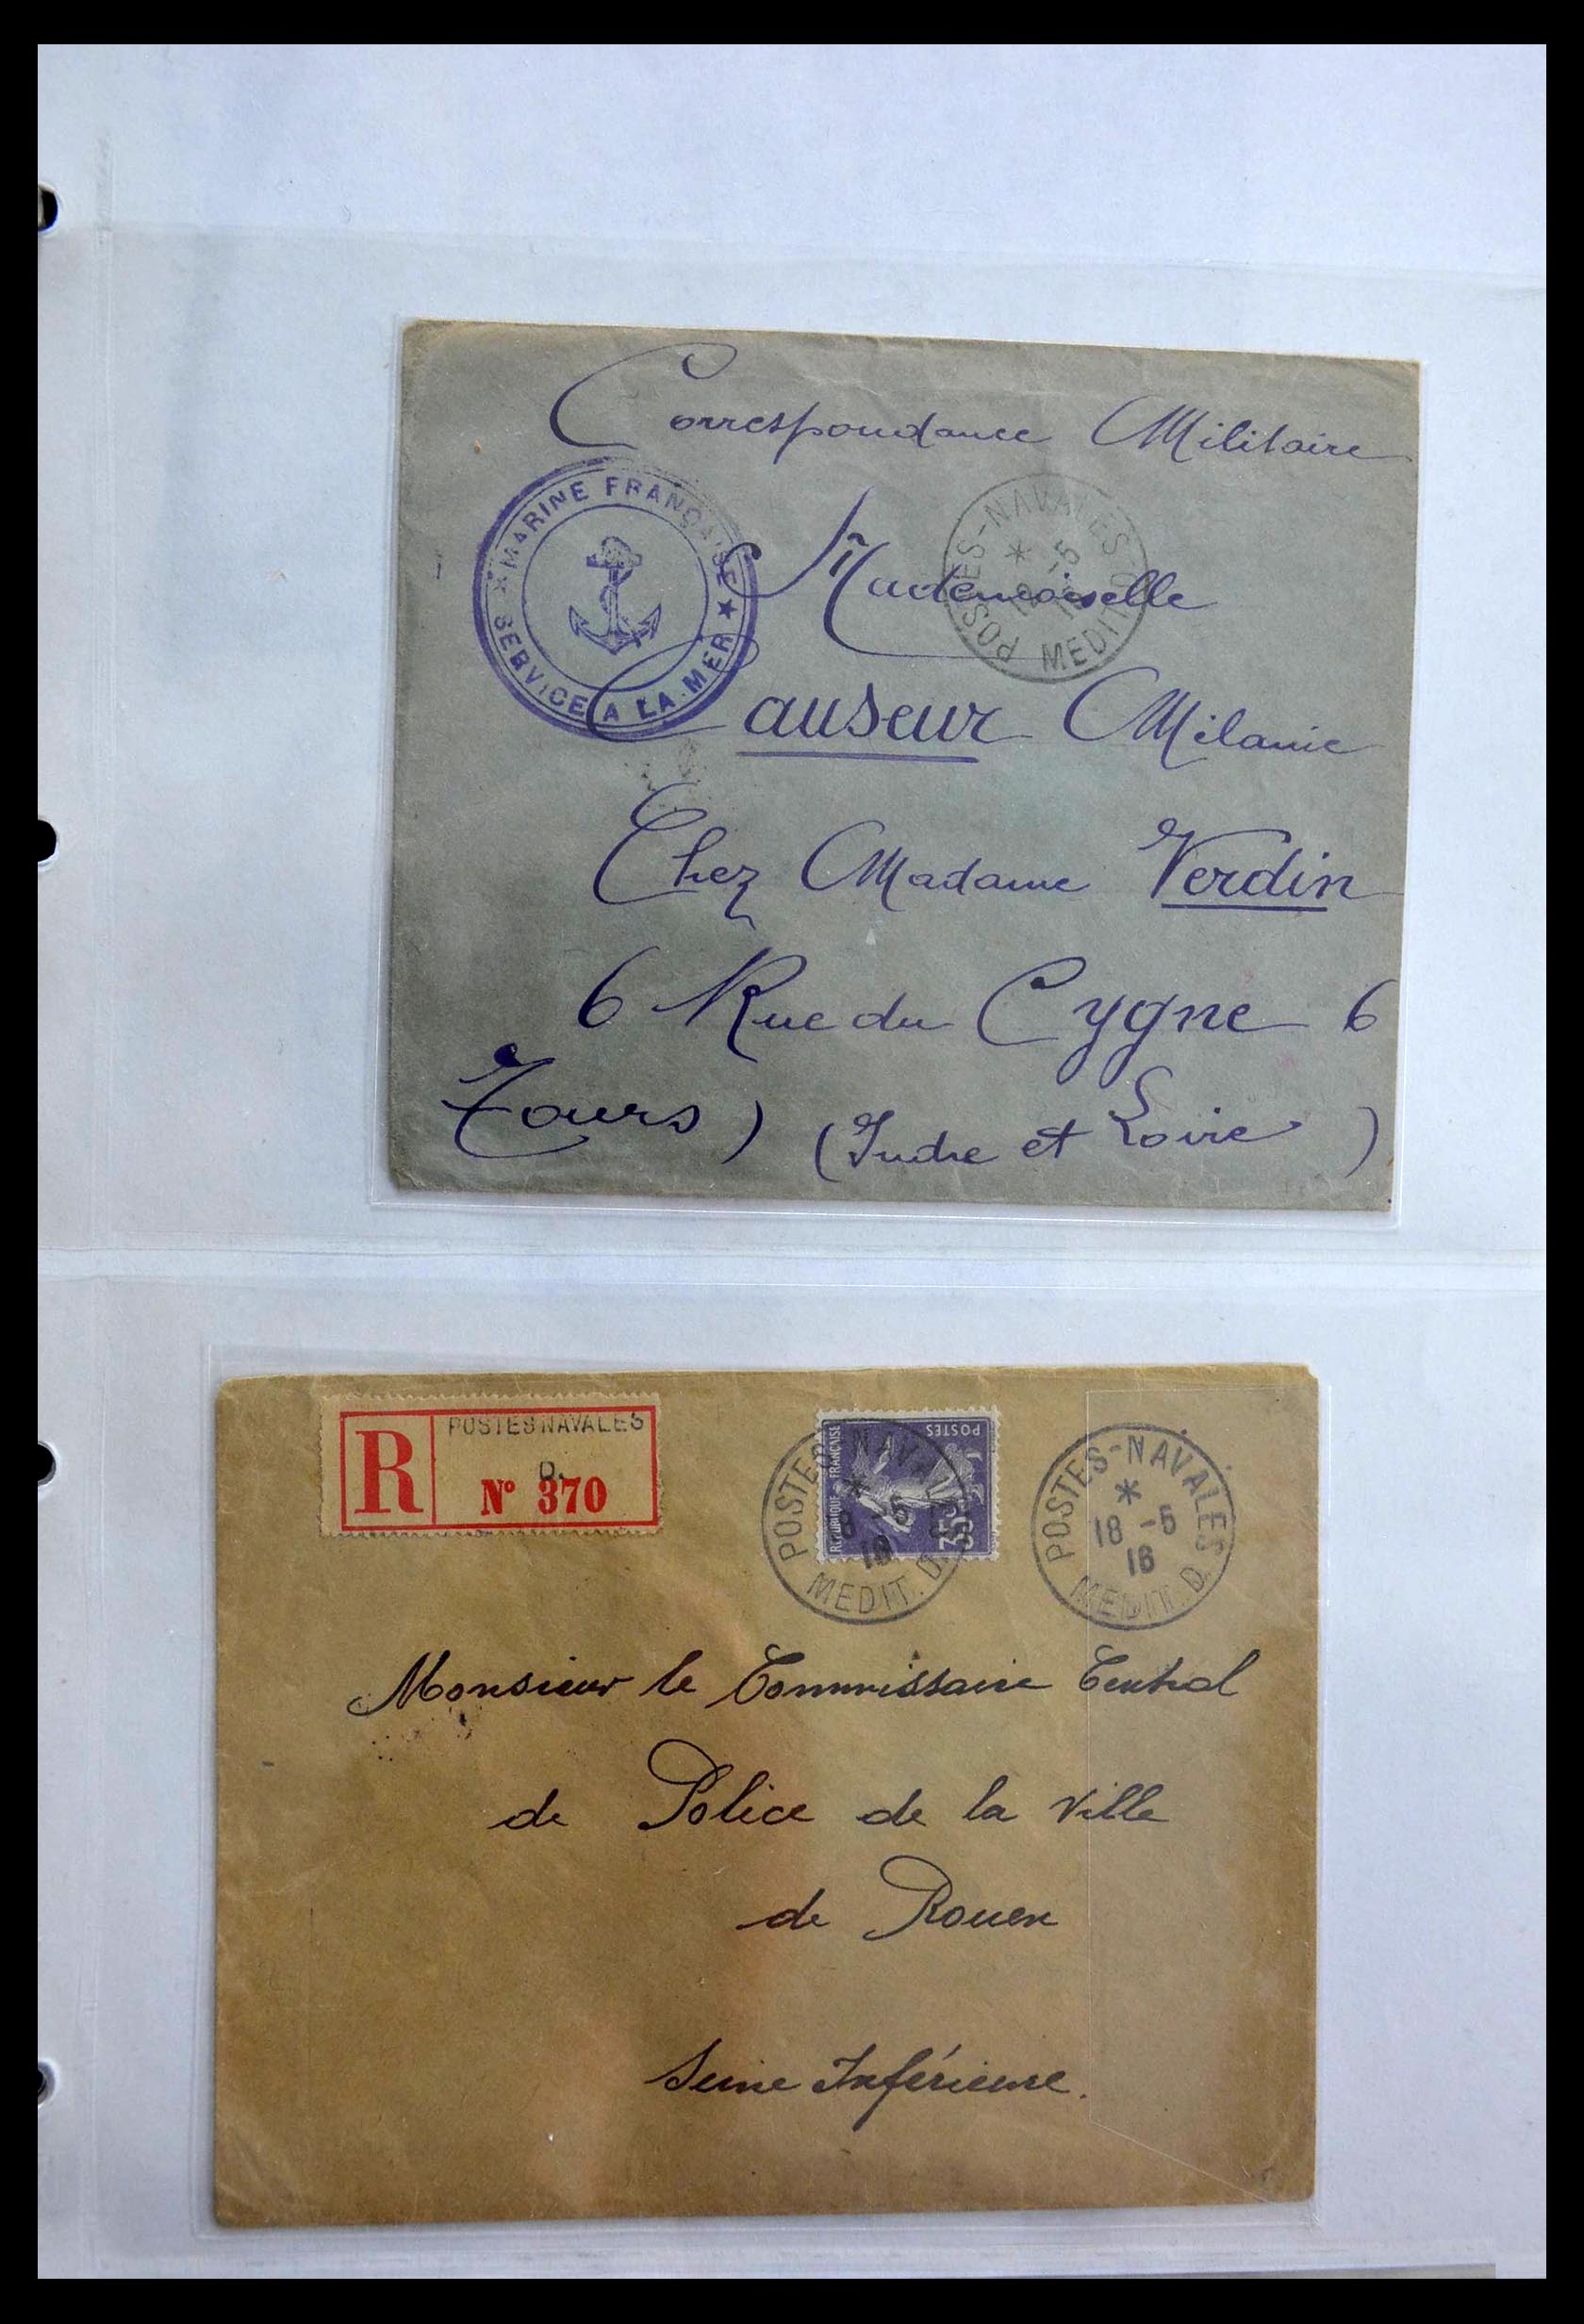 Correspondance Militaire
MARINE FRANÇAISE
SERVICE A LA MER
POSTES-NAVALES
-5
MEDIT
Mademoiselle
Causeur Mélanie
Chez Madame Verdin
6 Rue du Cygne 6
Tours) (Indre et Loire)
R
POSTES NAVALES
D.
N° 370
REPUBLIQUE FRANÇAISE
POSTES
35c
POSTES-NAVALES
18 -5
18
MEDIT. D.
POSTES-NAVALES
18 -5
18
MEDIT. D.
Monsieur le Commissaire Central
de Police de la Ville
de Rouen
Seine Inférieure.